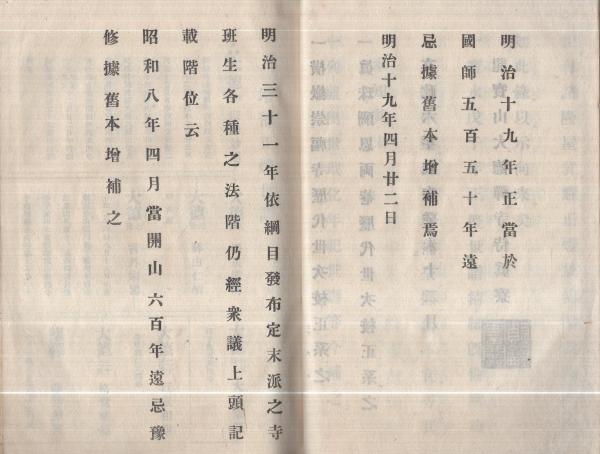 明治十九年正當於
國師五百五十年遠
忌據舊本增補焉
明治十九年四月廿二日
明治三十一年依綱目發布定末派之寺
班生各種之法階仍經衆議上頭記
載階位云
昭和八年四月當開山六百年遠忌豫
修據舊本增補之